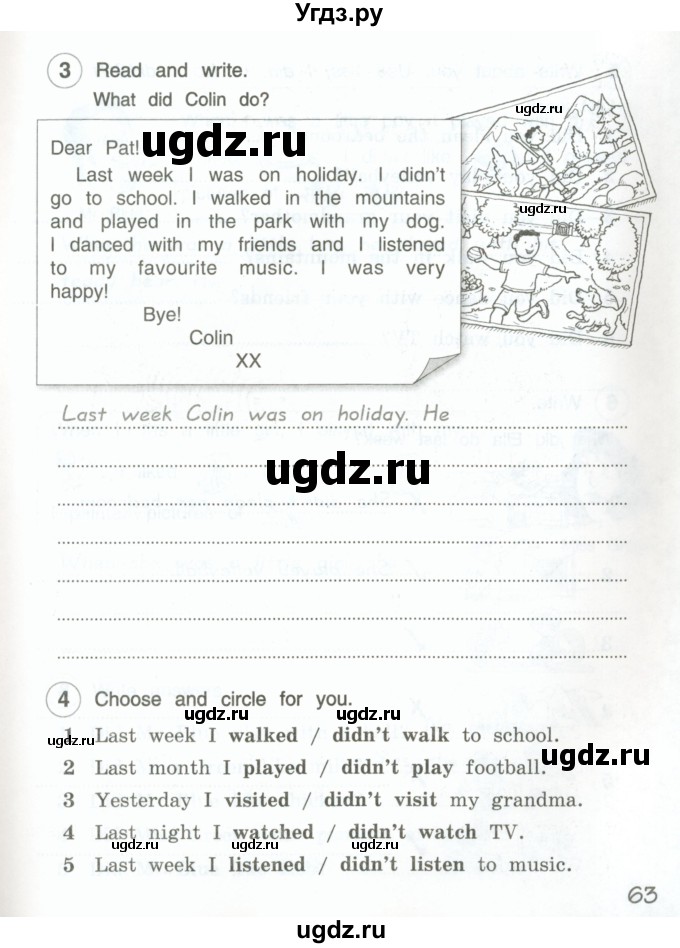 Угдз.ру
3 Read and write.
What did Colin do?
ugdz.ru
ugdz.ru
Dear Pat!
ugdz.ru
Last week I was on holiday. I didn't
go to school. I walked in the mountains
and played in the park with my dog.
I danced with my friends and I listened
to my favourite music. I was very
happy!
Bye!
Colin
XX
ugdz.ru
Last week Colin was on holiday. He
ugdz.ru
4 Choose and circle for you.
ugdz.ru
ugdz.ru
ugdz.ru
1 Last week I walked / didn't walk to school.
ugdz.ru
2 Last month I played / didn't play football.
3 Yesterday I visited / didn't visit my grandma.
4 Last night I watched / didn't watch TV.
ugdz.ru
ugdz.ru
ugdz.ru
5 Last week I listened / didn't listen to music.
63
ugdz.ru